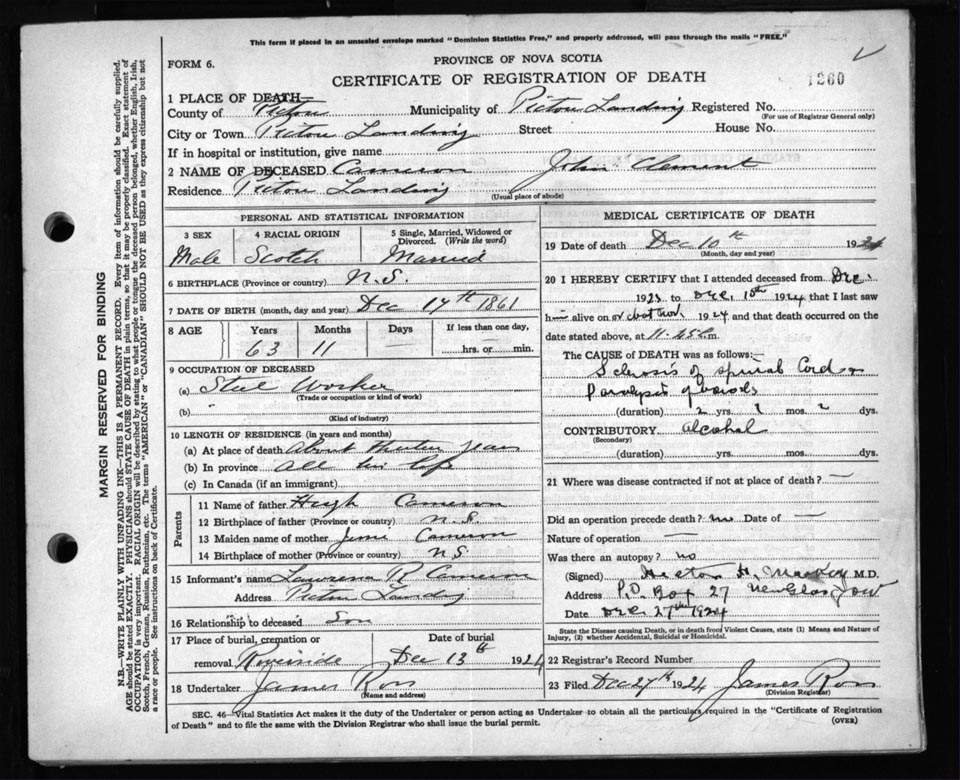 This form if placed in an unsealed envelope marked "Dominion Statistics Free," and properly addressed, will pass through the mails "FREE."
FORM 6.
PROVINCE OF NOVA SCOTIA
CERTIFICATE OF REGISTRATION OF DEATH
1260
1 PLACE OF DEATH—
County of Pictou Municipality of Pictou Landing Registered No.
(For use of Registrar General only)
City or Town Pictou Landing Street House No.
If in hospital or institution, give name
2 NAME OF DECEASED Cameron John Clement
Residence Pictou Landing
(Usual place of abode)
PERSONAL AND STATISTICAL INFORMATION
3 SEX 4 RACIAL ORIGIN 5 Single, Married, Widowed or Divorced. (Write the word)
Male Scotch Married
6 BIRTHPLACE (Province or country) N.S.
7 DATE OF BIRTH (month, day and year) Dec 14th 1861
8 AGE Years Months Days If less than one day,
63 11 hrs. or min.
9 OCCUPATION OF DECEASED
(a) Steel Worker
(Trade or occupation or kind of work)
(b)
(Kind of industry)
10 LENGTH OF RESIDENCE (in years and months)
(a) At place of death About years
(b) In province All his life
(c) In Canada (if an immigrant)
Parents
11 Name of father Hugh Cameron
12 Birthplace of father (Province or country) N.S.
13 Maiden name of mother Cameron
14 Birthplace of mother (Province or country) N.S.
15 Informant's name R Cameron
Address Pictou Landing
16 Relationship to deceased Son
17 Place of burial, cremation or removal Riverside
Date of burial Dec 13th 1924
18 Undertaker James Ross
(Name and address)
MEDICAL CERTIFICATE OF DEATH
19 Date of death Dec 10th 1924
(Month, day and year)
20 I HEREBY CERTIFY that I attended deceased from Dec.
1923 to Dec. 10th 1924 that I last saw
him alive on 1924 and that death occurred on the
date stated above, at 11.45 m.
The CAUSE of DEATH was as follows:—
Sclerosis of spinal Cord
(duration) 2 yrs. ? mos. dys.
CONTRIBUTORY alcohol
(Secondary)
(duration) yrs. mos. dys.
21 Where was disease contracted if not at place of death? —
Did an operation precede death? no Date of —
Nature of operation —
Was there an autopsy? no
(Signed) Hector H. MacKay M.D.
Address P.O. Box 27 New Glasgow
Date Dec. 27th 1924
State the Disease causing Death, or in death from Violent Causes, state (1) Means and Nature of Injury, (2) whether Accidental, Suicidal or Homicidal.
22 Registrar's Record Number
23 Filed Dec 27th 1924 James Ross
(Division Registrar)
SEC. 46—Vital Statistics Act makes it the duty of the Undertaker or person acting as Undertaker to obtain all the particulars required in the "Certificate of Registration
of Death" and to file the same with the Division Registrar who shall issue the burial permit.
(OVER)
MARGIN RESERVED FOR BINDING
N.B.—WRITE PLAINLY WITH UNFADING INK—THIS IS A PERMANENT RECORD. Every item of information should be carefully supplied.
AGE should be stated EXACTLY. PHYSICIANS should STATE CAUSE OF DEATH in plain terms, so that it may be properly classified. Exact statement of
OCCUPATION is very important. RACIAL ORIGIN will be described by stating to what people or tongue the deceased person belonged, whether English, Irish,
Scotch, French, German, Russian, Ruthenian, etc. The terms "AMERICAN" or "CANADIAN" SHOULD NOT BE USED as they express citizenship but not
a race or people. See instructions on back of Certificate.